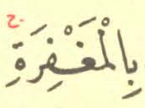 ج
بِالْمَغْفِرَةِ